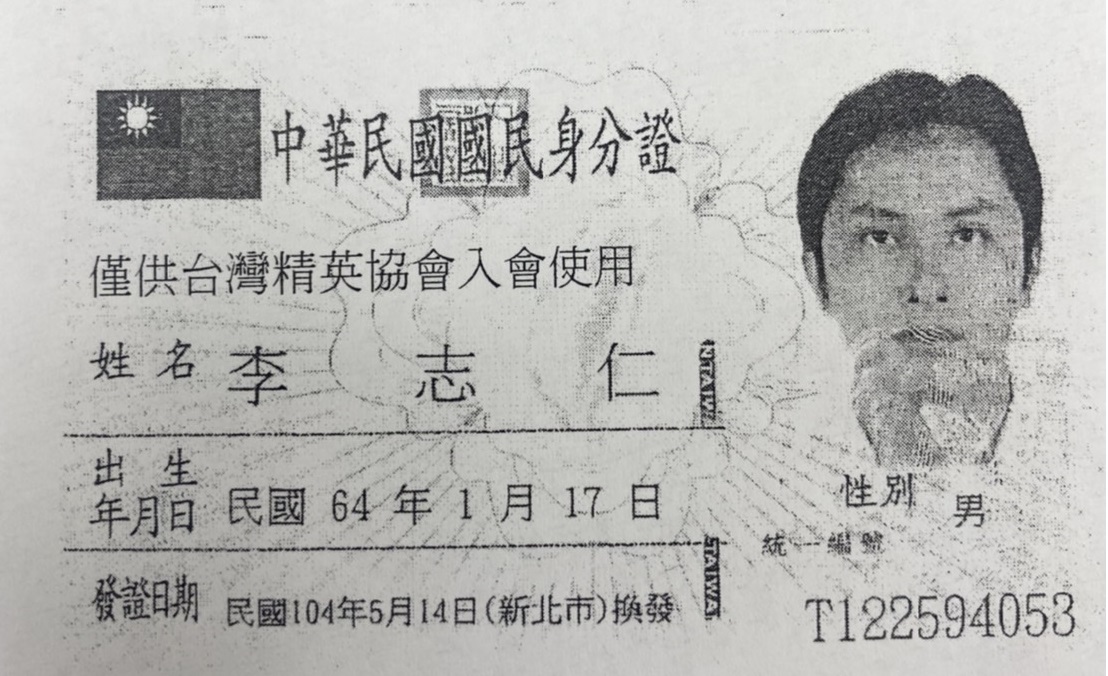 中華民國國民身分證
僅供台灣精英協會入會使用
姓名 李志仁
出生年月日 民國 64 年 1 月 17 日
發證日期 民國104年5月14日(新北市)換發
性別 男
統一編號
T122594053
TAIWAN